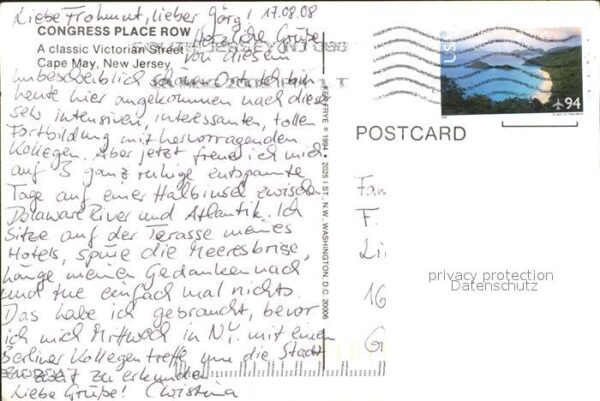 Liebe Frohmut, lieber Görg! 17.08.08
CONGRESS PLACE ROW
Herzliche Grüße
A classic Victorian Street
von diesem
Cape May, New Jersey
unbeschreiblich schönen Ort. Ich bin
heute hier angekommen nach dieser
sehr intensiven, interessanten, tollen
Fortbildung mit hervorragenden
Kollegen. Aber jetzt freue ich mich
auf 3 ganz ruhige entspannte
Tage auf einer Halbinsel zwischen
Delaware River und Atlantik. Ich
Sitze auf der Terasse meines
Hotels, spüre die Meeresbrise,
hänge meinen Gedanken nach
und tue einfach mal nichts.
Das habe ich gebraucht, bevor
ich mich Mittwoch in N.Y. mit einem
Berliner Kollegen treffe um die Stadt
zu erkunden
Liebe Grüße! Christina
FRYE © 1994 • 2025 I ST. N.W. WASHINGTON, D.C. 20006
USA
94
POSTCARD
Fam
F.
Li
16
G
privacy protection
Datenschutz